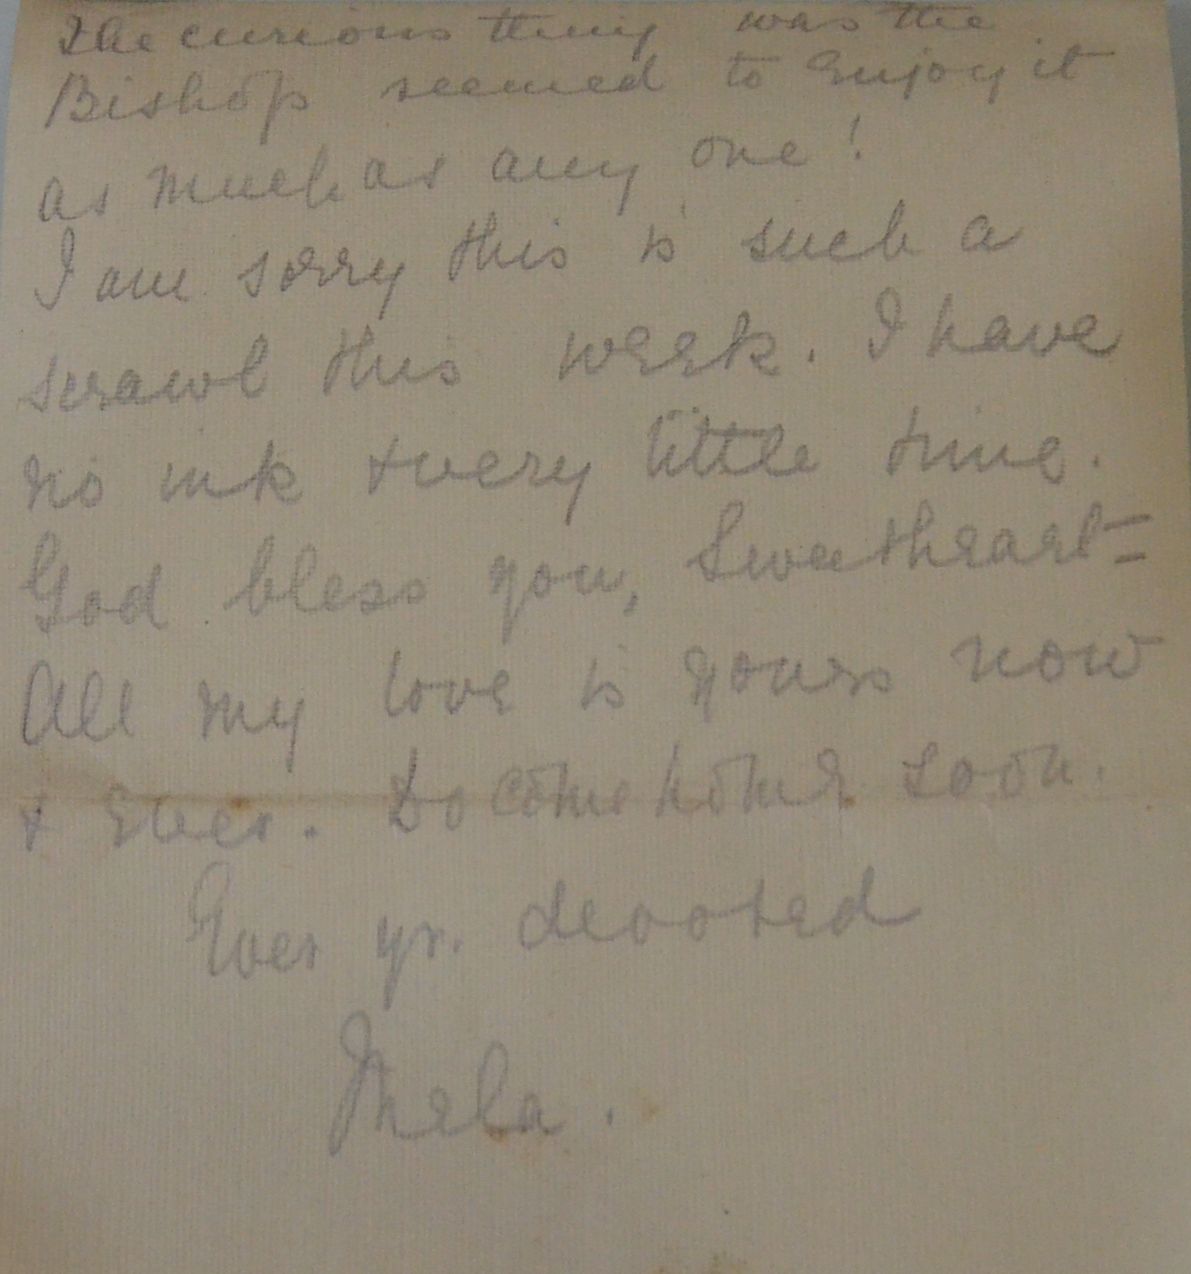 The curious thing was the
Bishop seemed to Enjoy it
as much as any one!
I am sorry this is such a
scrawl this week. I have
no ink & very little time.
God bless you, Sweetheart=
All my love is yours now
& Ever. Do come home soon.
Ever yr. devoted
Mela.